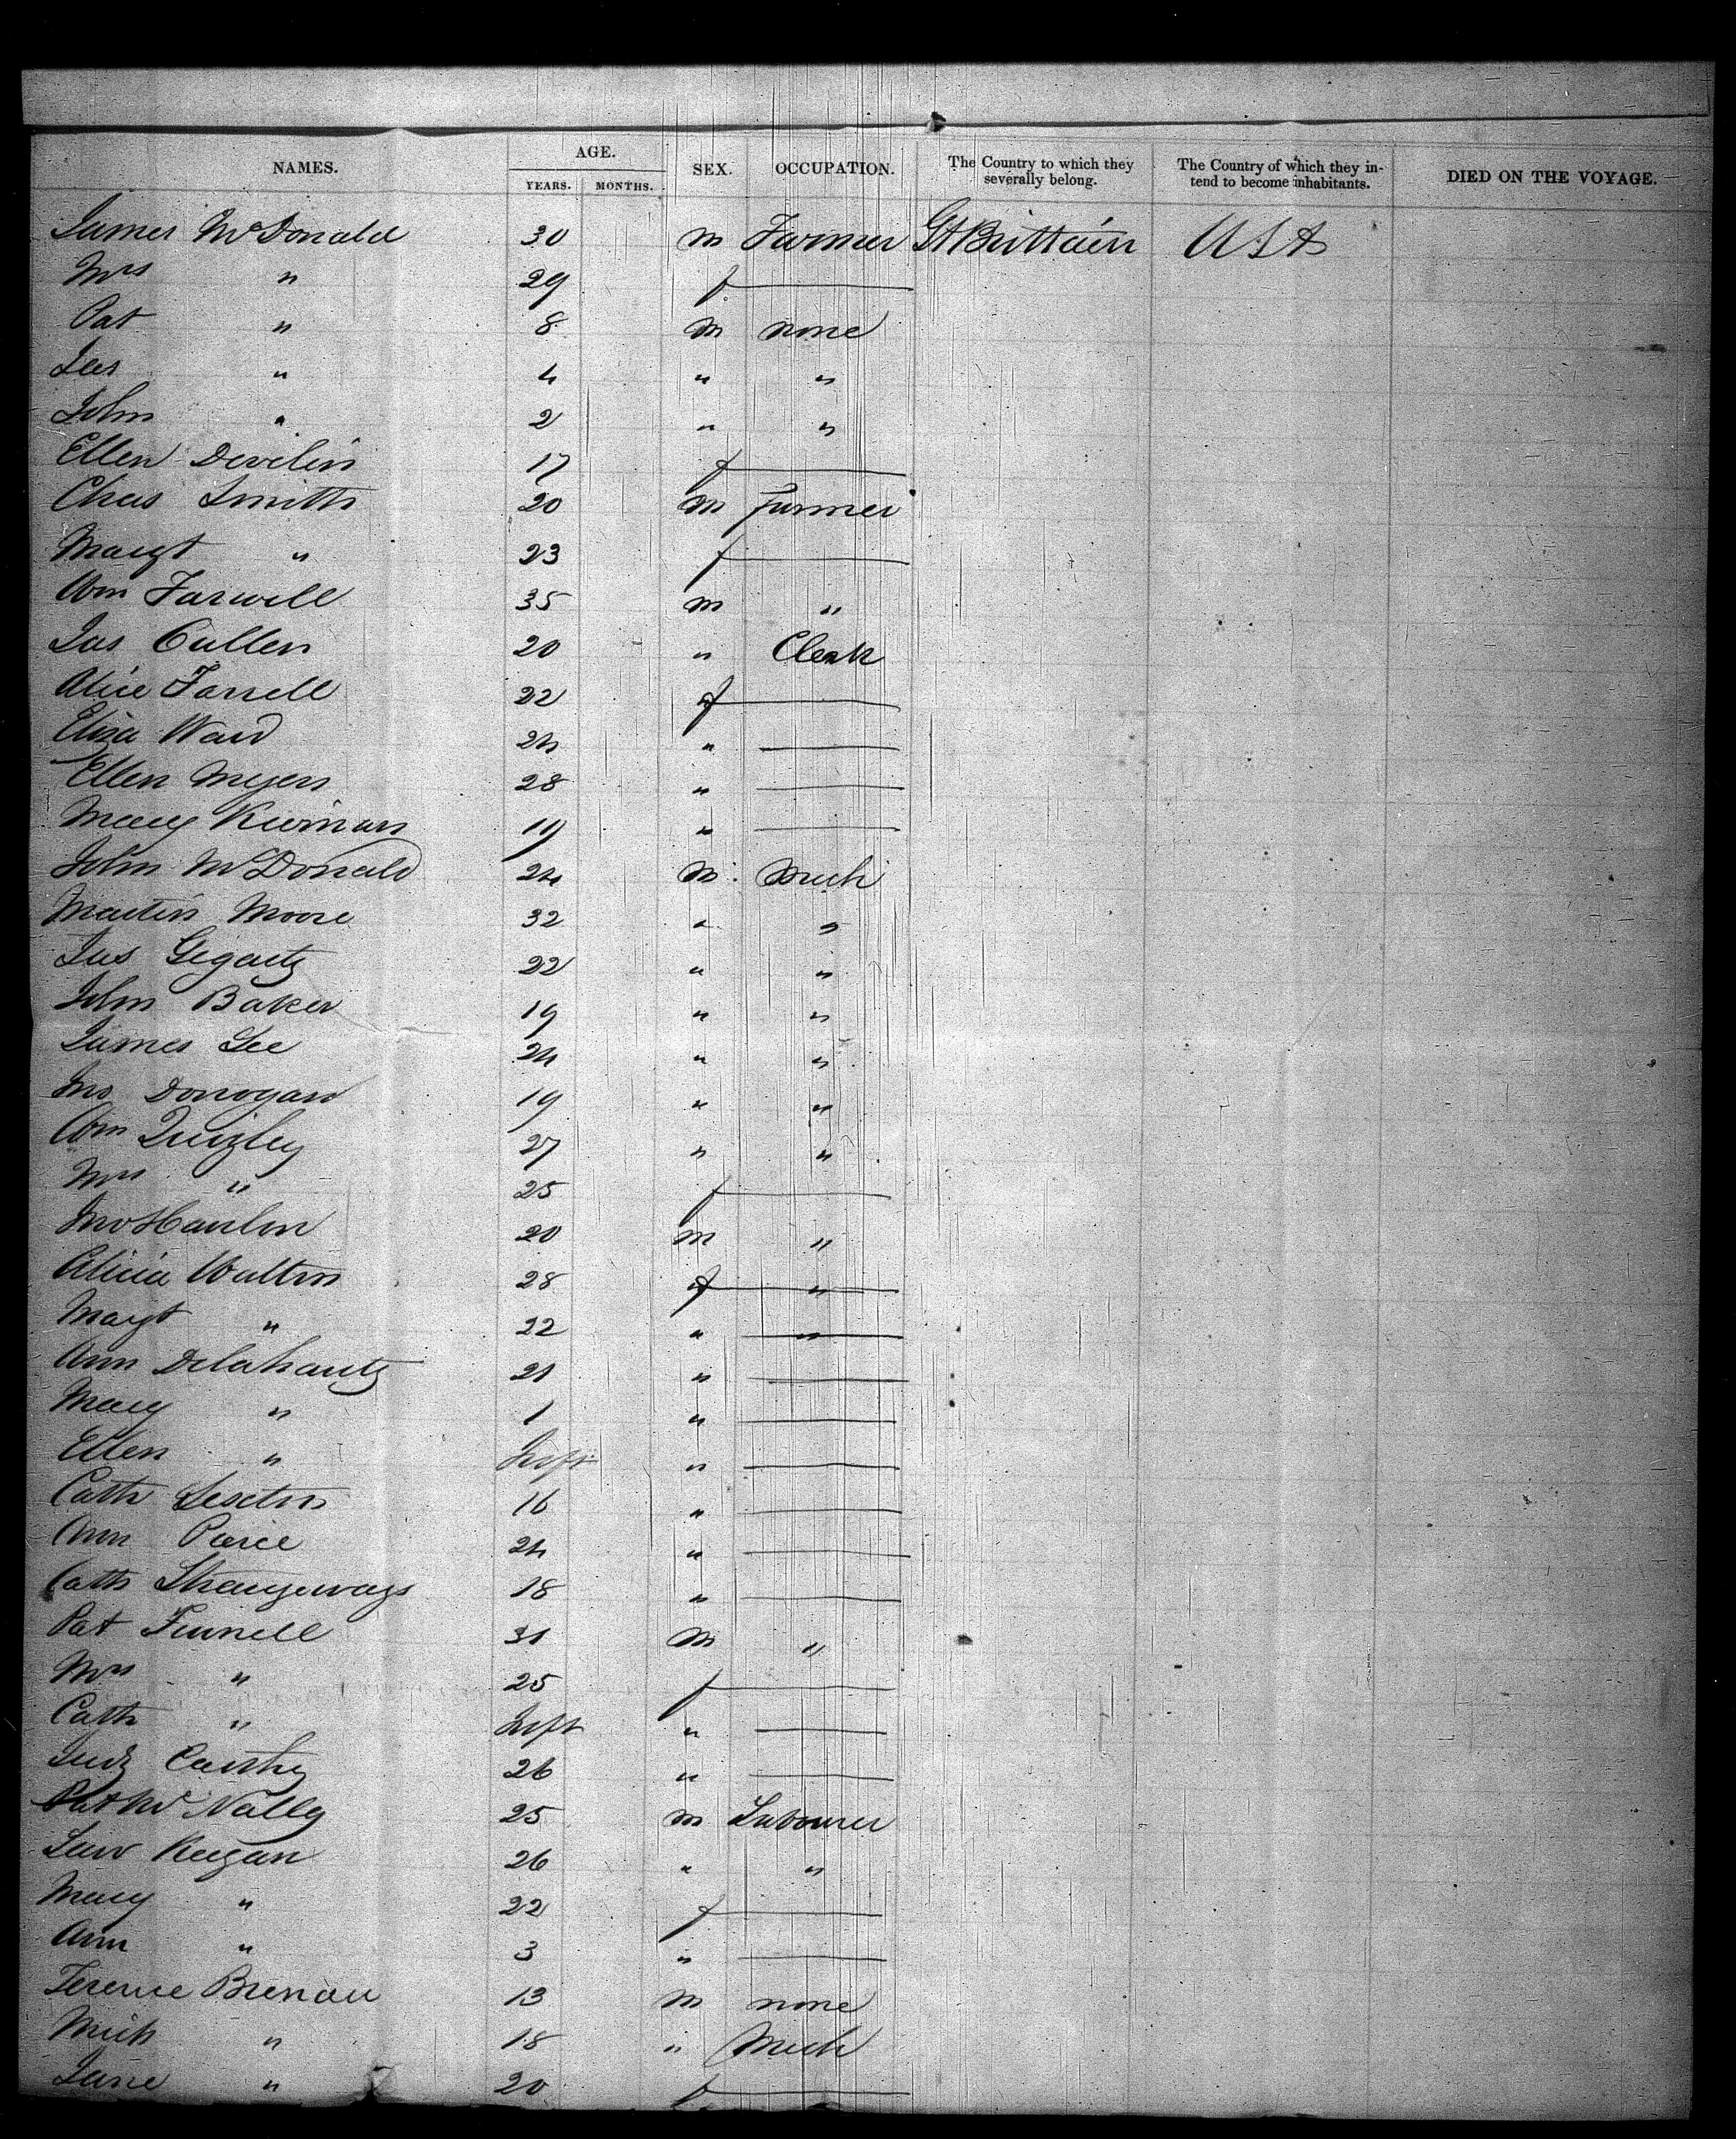 NAMES. AGE. SEX. OCCUPATION. The Country to which they severally belong. The Country of which they in-tend to become inhabitants. DIED ON THE VOYAGE.
YEARS. MONTHS.
James McDonald 30 m Farmer Gt Brittain USA
Mrs " 29 f
Pat " 8 m none
Jas " 4 " "
John " 2 " "
Ellen Devilin 17 f
Chas Smith 20 m Farmer
Margt " 23 f
Wm Farwell 35 m "
Jas Cullen 20 " Clerk
Alice Farrell 22 f
Eliza Ward 24 "
Ellen Myers 28 "
Mary Kiernan 19 "
John McDonald 24 m Mech
Martin Moore 32 " "
Jas Gegarty 22 " "
John Baker 19 " "
James Lee 24 " "
Jno Donogan 19 " "
Wm Quigley 27 " "
Mrs " 25 f
Jno Hanlon 20 m "
Alicia Walton 28 f "
Margt " 22 " "
Ann Delahanty 21 "
Mary " 1 "
Ellen " Inft "
Cath Sexton 16 "
Ann Pierce 24 "
Cath Strangeways 18 "
Pat Finnell 31 m "
Mrs " 25 f
Cath " Inft "
Judy Carthy 26 "
Pat McNally 25 m Labourer
Law Keegan 26 " "
Mary " 22 f
Ann " 3 "
Terence Brenan 13 m none
Mich " 18 " Mech
Jane " 20 f